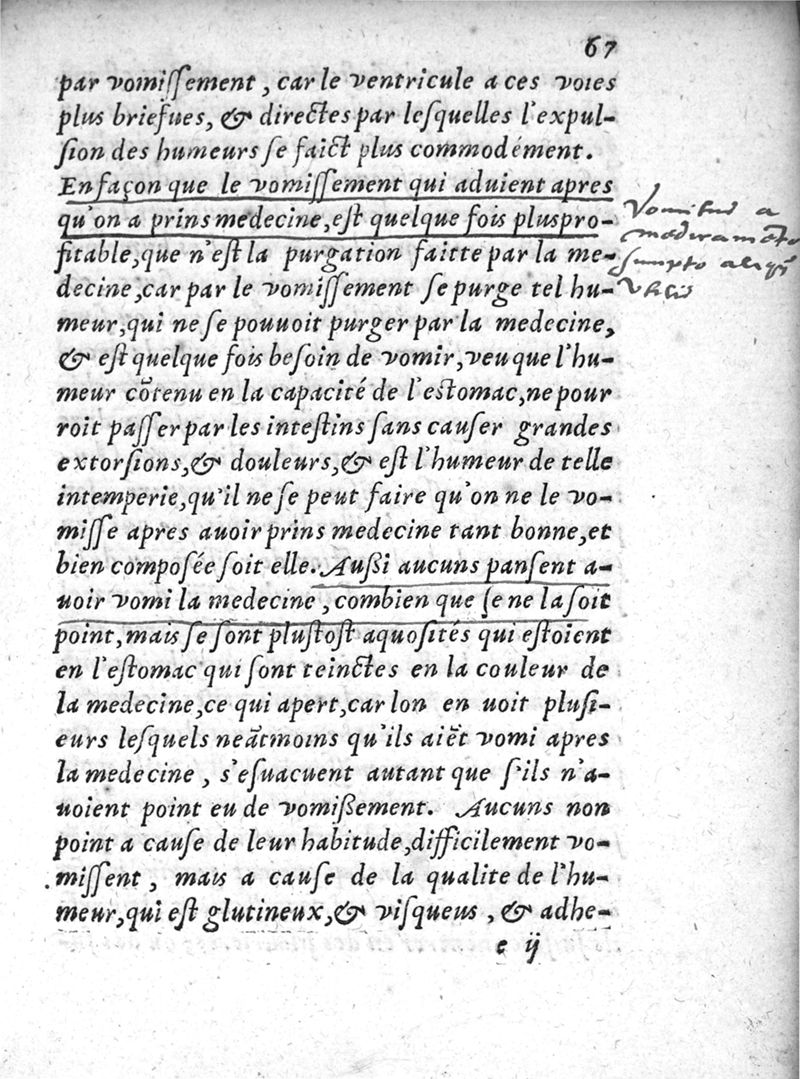 67
par vomiſſement, car le ventricule a ces voies
plus briefues, & directes par leſquelles l'expul-
ſion des humeurs ſe faict plus commodément.
En façon que le vomiſſement qui aduient apres
qu'on a prins medecine, eſt quelque fois plus pro-
fitable, que n'eſt la purgation faitte par la me-
decine, car par le vomiſſement ſe purge tel hu-
meur, qui ne ſe pouuoit purger par la medecine,
& eſt quelque fois beſoin de vomir, veu que l'hu-
meur cõtenu en la capacité de l'eſtomac, ne pour
roit paſſer par les inteſtins ſans cauſer grandes
extorſions, & douleurs, & eſt l'humeur de telle
intemperie, qu'il ne ſe peut faire qu'on ne le vo-
miſſe apres auoir prins medecine tant bonne, et
bien compoſée ſoit elle. Außi aucuns panſent a-
uoir vomi la medecine, combien que ſe ne la ſoit
point, mais ſe ſont pluſtoſt aquoſités qui eſtoient
en l'eſtomac qui ſont teinctes en la couleur de
la medecine, ce qui apert, car lon en uoit pluſi-
eurs leſquels neãtmoins qu'ils aiẽt vomi apres
la medecine, s'eſuacuent autant que ſ'ils n'a-
uoient point eu de vomißement. Aucuns non
point a cauſe de leur habitude, difficilement vo-
miſſent, mais a cauſe de la qualite de l'hu-
meur, qui eſt glutineux, & viſqueus, & adhe-
e ij
Vomitus a
medicamẽto
ſumpto
vtilis